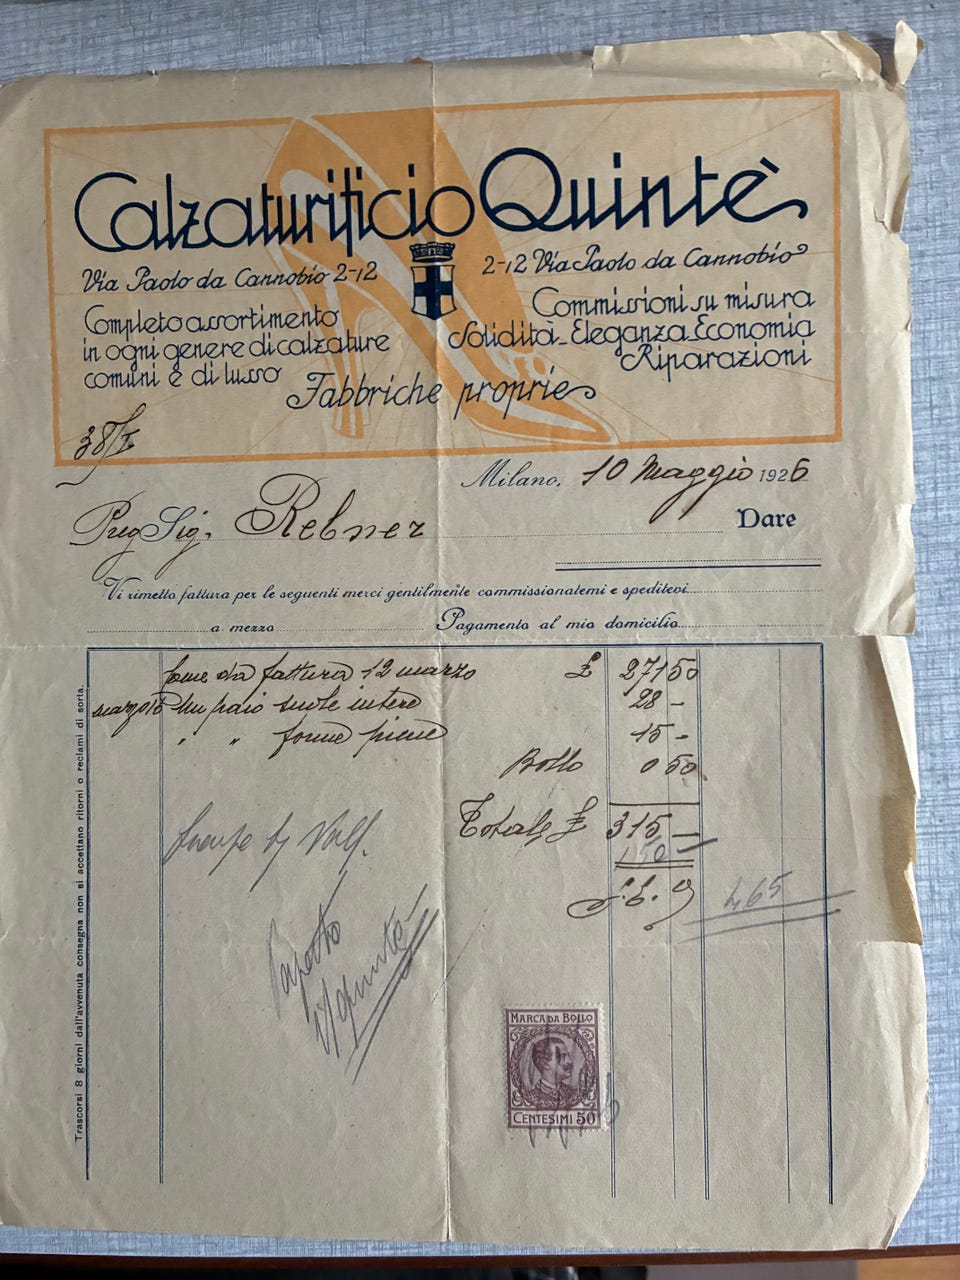 Calzaturificio Quintè
Via Paolo da Cannobio 2-12
2-12 Via Paolo da Cannobio
Completo assortimento
in ogni genere di calzature
comuni e di lusso
Commissioni su misura
Solidità-Eleganza-Economia
Riparazioni
Fabbriche proprie
38/I
Milano, 10 Maggio 1926
Preg Sig. Rebner
Dare
Vi rimetto fattura per le seguenti merci gentilmente commissionatemi e speditevi
a mezzo Pagamento al mio domicilio
Trascorsi 8 giorni dall'avvenuta consegna non si accettano ritorni o reclami di sorta.
come da fattura 12 marzo £ 271 50
marzo 15 Un paio suole intere 28 -
" " forme piene 15 -
Bollo 0 50
Totale £ 315 -
150
S.E.O
465
MARCA DA BOLLO
CENTESIMI 50